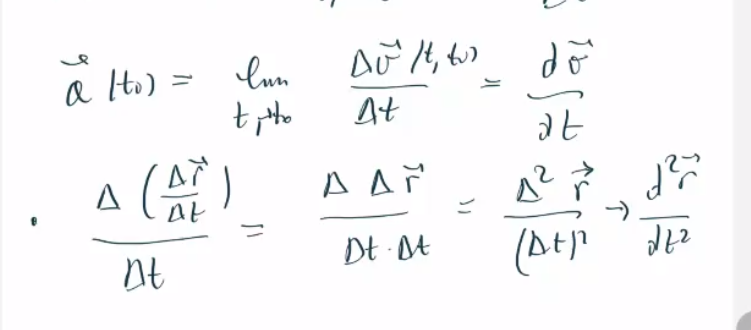 a⃗ (t₀) = lim_{t₁→t₀} Δv⃗ (t, t₀) / Δt = dv⃗ / dt
Δ (Δr⃗ / Δt) / Δt = Δ Δr⃗ / Dt · Δt = Δ² r⃗ / (Δt)² → d²r⃗ / dt²